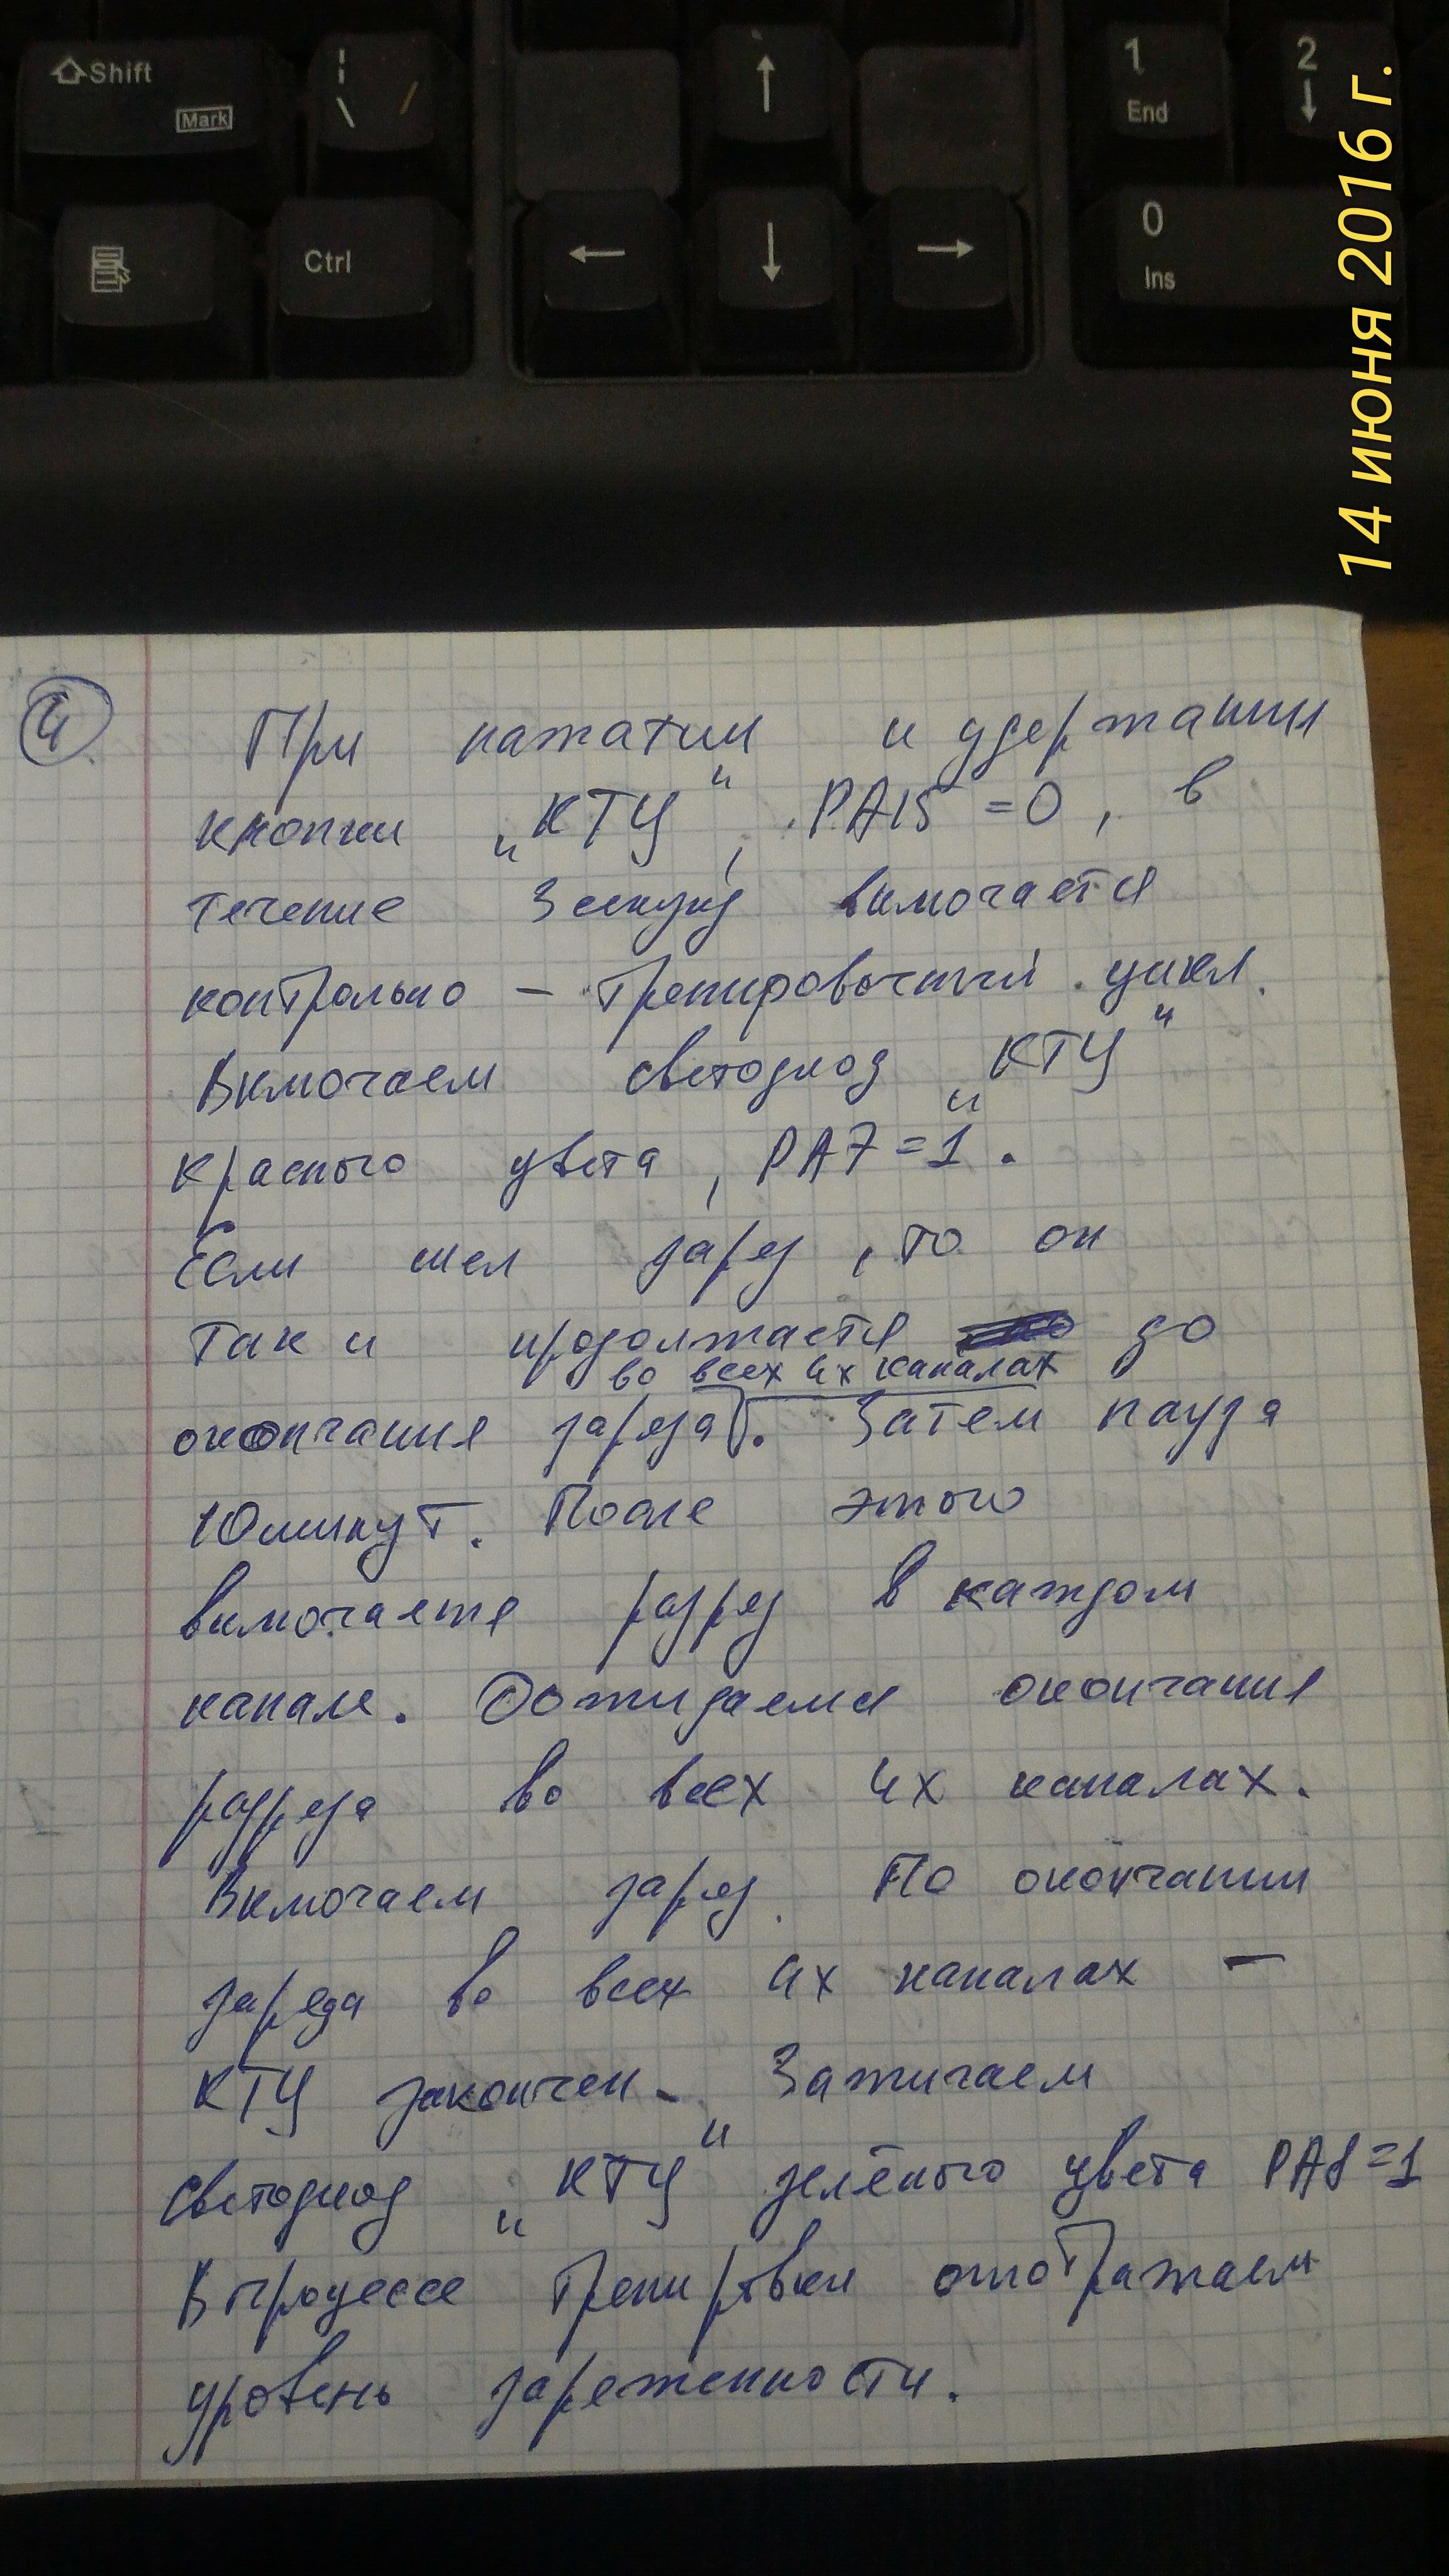 Shift
Mark
¦
\ /
↑
1
End
2
↓
Ctrl
←
↓
→
0
Ins
14 июня 2016 г.
4
При нажатии и удержании
кнопки „КТЦ“, PA15=0, в
течение 3 секунд включается
контрольно – тренировочный цикл.
Включаем светодиод „КТЦ“
красного цвета, PA7=1.
Если шел заряд, то он
так и продолжается до
во всех 4х каналах
окончания заряда. Затем пауза
10 минут. После этого
включается разряд в каждом
канале. Дожидаемся окончания
разряда во всех 4х каналах.
Включаем заряд. По окончании
заряда во всех 4х каналах –
КТЦ закончен. Зажигаем
светодиод „КТЦ“ зелёного цвета PA8=1
В процессе тренировки отображаем
уровень заряженности.